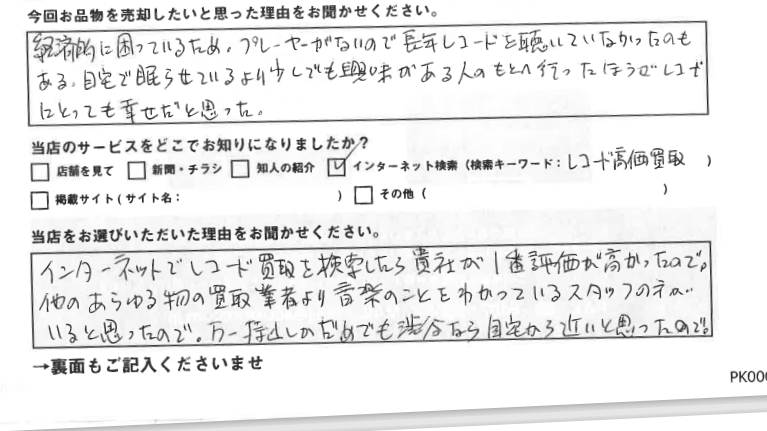 今回お品物を売却したいと思った理由をお聞かせください。
経済的に困っているため。プレーヤーがないので長年レコードを聴いていなかったのも
ある。自宅で眠らせているより少しでも興味がある人のもとへ行ったほうがレコード
にとっても幸せだと思った。
当店のサービスをどこでお知りになりましたか？
□ 店舗を見て □ 新聞・チラシ □ 知人の紹介 ☑ インターネット検索（検索キーワード：レコード高価買取 ）
□ 掲載サイト（サイト名： ） □ その他（ ）
当店をお選びいただいた理由をお聞かせください。
インターネットでレコード買取を検索したら貴社が1番評価が高かったので。
他のあらゆる物の買取業者より音楽のことをわかっているスタッフの方が
いると思ったので。万一持出しがだめでも渋谷なら自宅から近いと思ったので。
→裏面もご記入くださいませ
PK000